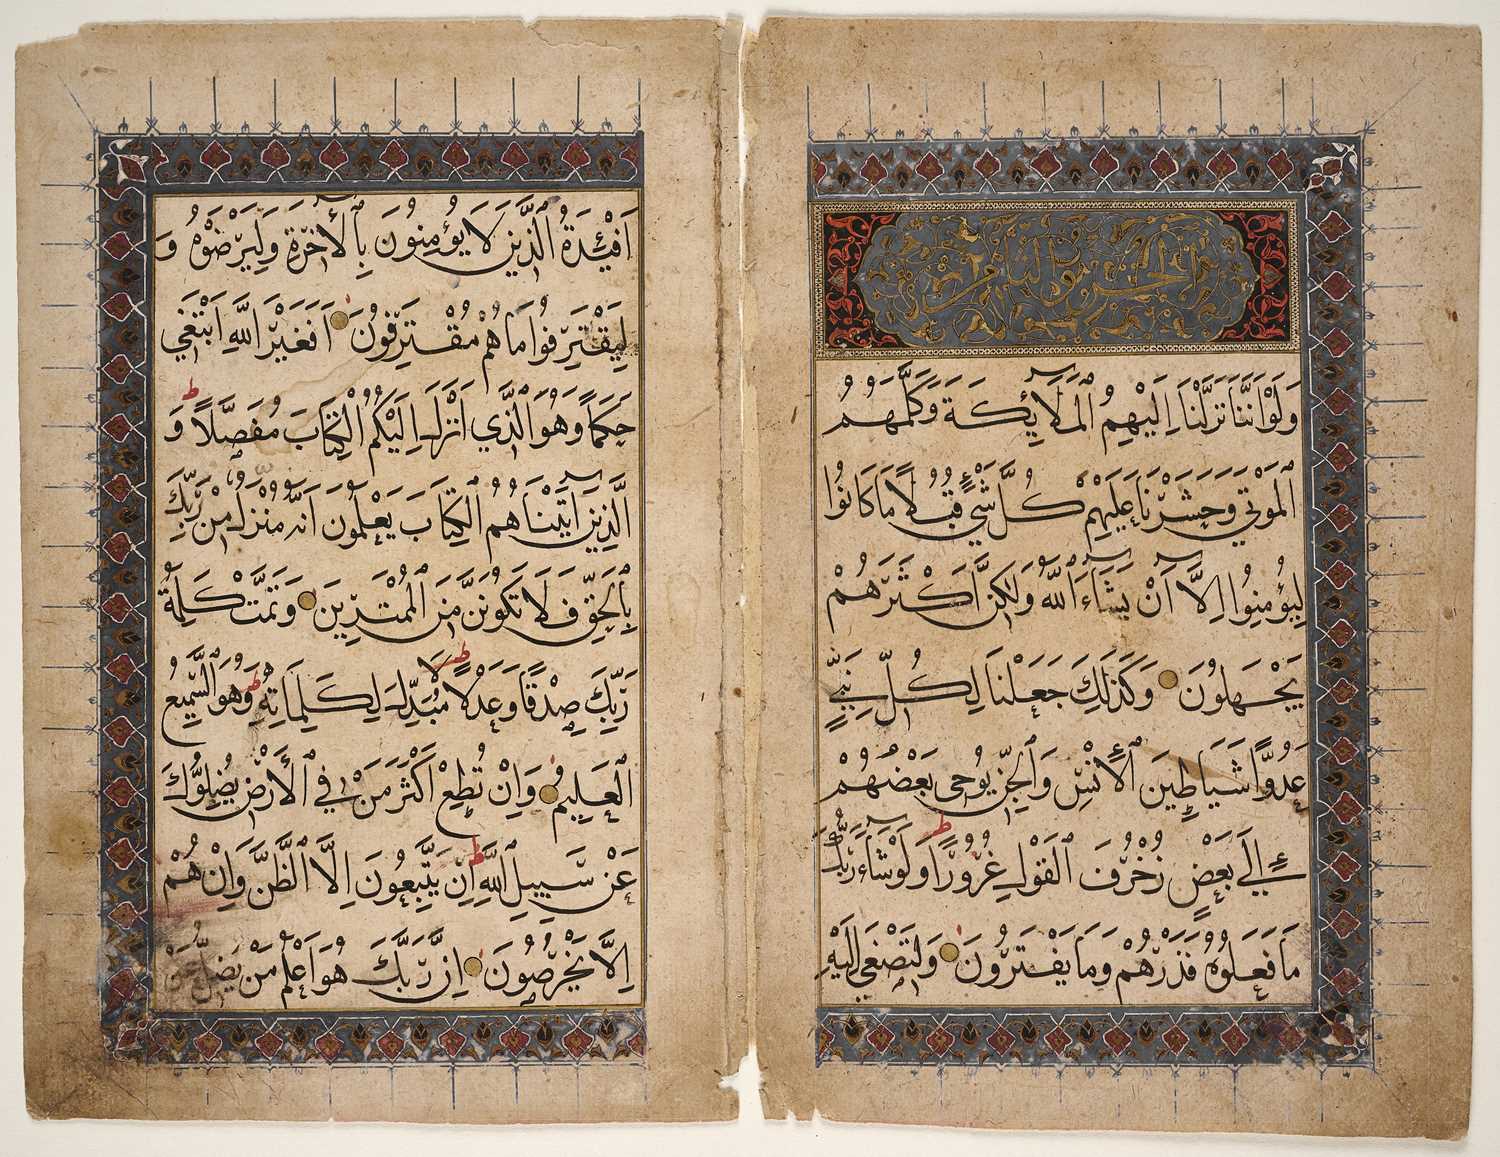 الجزو الثامن
وَلَوْ اَنَّنَا نَزَّلْنَا اِلَيْهِمُ الْمَلَائِكَةَ وَكَلَّمَهُمُ
الْمَوْتٰى وَحَشَرْنَا عَلَيْهِمْ كُلَّ شَيْءٍ قُبُلًا مَا كَانُوا
لِيُؤْمِنُوا اِلَّا اَنْ يَشَاءَ اللّٰهُ وَلٰكِنَّ اَكْثَرَهُمْ
يَجْهَلُونَ وَكَذٰلِكَ جَعَلْنَا لِكُلِّ نَبِيٍّ
عَدُوًّا شَيَاطِينَ الْاِنْسِ وَالْجِنِّ يُوحِى بَعْضُهُمْ
اِلٰى بَعْضٍ زُخْرُفَ الْقَوْلِ غُرُورًا ط وَلَوْ شَاءَ رَبُّكَ
مَا فَعَلُوهُ فَذَرْهُمْ وَمَا يَفْتَرُونَ وَلِتَصْغٰى اِلَيْهِ
اَفْئِدَةُ الَّذِينَ لَا يُؤْمِنُونَ بِالْاٰخِرَةِ وَلِيَرْضَوْهُ وَ
لِيَقْتَرِفُوا مَا هُمْ مُقْتَرِفُونَ اَفَغَيْرَ اللّٰهِ اَبْتَغِي
حَكَمًا وَهُوَ الَّذِي اَنْزَلَ اِلَيْكُمُ الْكِتَابَ مُفَصَّلًا ط وَ
الَّذِينَ اٰتَيْنَاهُمُ الْكِتَابَ يَعْلَمُونَ اَنَّهُ مُنْزَلٌ مِنْ رَبِّكَ
بِالْحَقِّ فَلَا تَكُونَنَّ مِنَ الْمُمْتَرِينَ وَتَمَّتْ كَلِمَةُ
رَبِّكَ صِدْقًا وَعَدْلًا ط لَا مُبَدِّلَ لِكَلِمَاتِهِ ط وَهُوَ السَّمِيعُ
الْعَلِيمُ وَاِنْ تُطِعْ اَكْثَرَ مَنْ فِي الْاَرْضِ يُضِلُّوكَ
عَنْ سَبِيلِ اللّٰهِ ط اِنْ يَتَّبِعُونَ اِلَّا الظَّنَّ وَاِنْ هُمْ
اِلَّا يَخْرُصُونَ اِنَّ رَبَّكَ هُوَ اَعْلَمُ مَنْ يَضِلُّ عَنْ